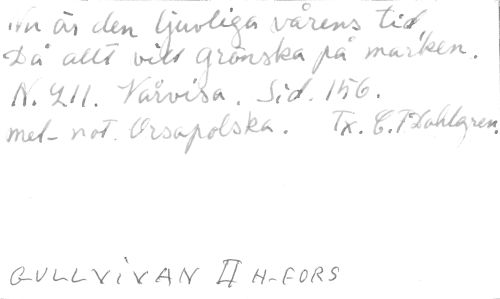 Nu är den ljuvliga vårens tid
Då allt vill grönska på marken.
N. 211. Vårvisa. Sid. 156.
mel- not. Orsapolska. Tx. C. F Dahlgren.
GULLVIVAN II H-FORS